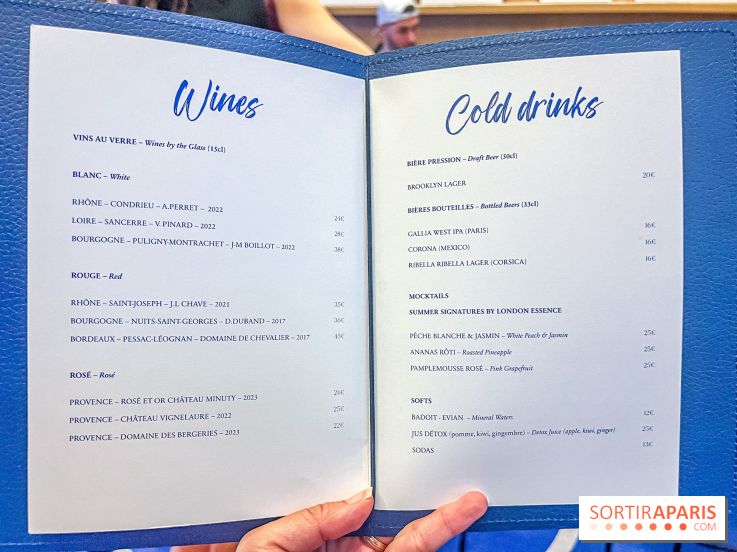 Wines
VINS AU VERRE – Wines by the Glass (15cl)
BLANC – White
RHÔNE – CONDRIEU – A.PERRET – 2022 24€
LOIRE – SANCERRE – V. PINARD – 2022 28€
BOURGOGNE – PULIGNY-MONTRACHET – J-M BOILLOT – 2022 38€
ROUGE – Red
RHÔNE – SAINT-JOSEPH – J.L CHAVE – 2021 35€
BOURGOGNE – NUITS-SAINT-GEORGES – D.DUBAND – 2017 36€
BORDEAUX – PESSAC-LÉOGNAN – DOMAINE DE CHEVALIER – 2017 45€
ROSÉ – Rosé
PROVENCE – ROSÉ ET OR CHÂTEAU MINUTY – 2023 24€
PROVENCE – CHÂTEAU VIGNELAURE – 2022 25€
PROVENCE – DOMAINE DES BERGERIES – 2023 22€
Cold drinks
BIÈRE PRESSION – Draft Beer (50cl)
BROOKLYN LAGER 20€
BIÈRES BOUTEILLES – Bottled Beers (33cl)
GALLIA WEST IPA (PARIS) 16€
CORONA (MEXICO) 16€
RIBELLA RIBELLA LAGER (CORSICA) 16€
MOCKTAILS
SUMMER SIGNATURES BY LONDON ESSENCE
PÊCHE BLANCHE & JASMIN – White Peach & Jasmin 25€
ANANAS RÔTI – Roasted Pineapple 25€
PAMPLEMOUSSE ROSÉ – Pink Grapefruit 25€
SOFTS
BADOIT - EVIAN – Mineral Waters 12€
JUS DÉTOX (pomme, kiwi, gingembre) – Detox Juice (apple, kiwi, ginger) 25€
SODAS 13€
SORTIRAPARIS
.COM